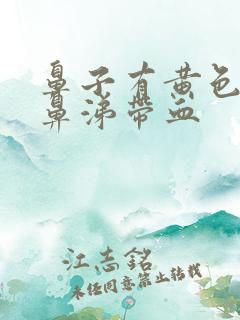 鼻子有黄色
鼻涕带血
江志銘
未经同意禁止转载